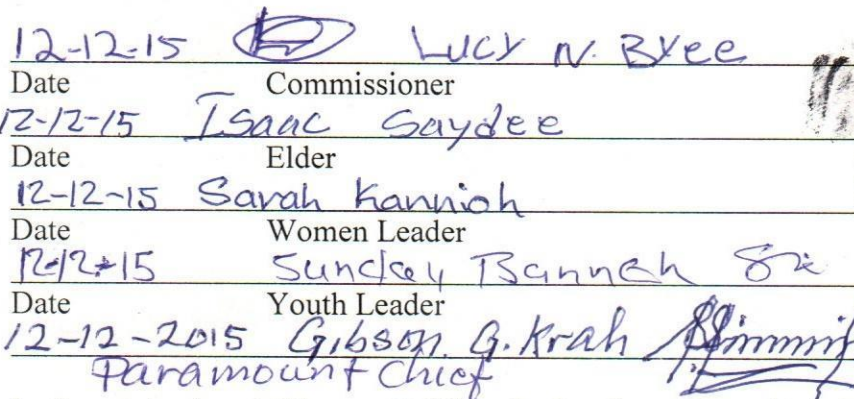 12-12-15 Lucy N. Byee
Date Commissioner
12-12-15 Isaac Saydee
Date Elder
12-12-15 Sarah Kannioh
Date Women Leader
12-12-15 Sunday Bannah
Date Youth Leader
12-12-2015 Gibson G. Krah
Paramount Chief